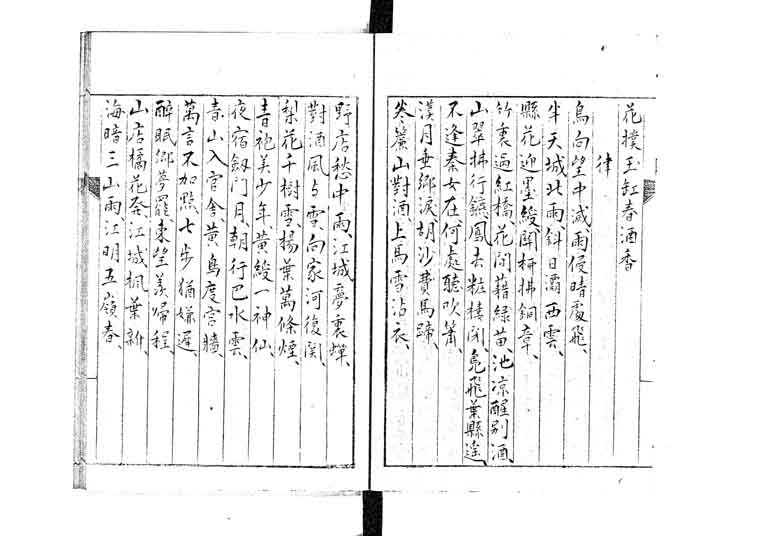 花撲玉缸春酒香
律
鳥向望中滅、雨侵晴處飛、
半天城北雨、斜日灞西雲、
縣花迎墨綬、關柳拂銅章、
竹裏過紅橋、花間藉綠苗、池凉醒別酒、
山翠拂行鑣、鳳去粧樓閉、鳬飛葉縣遥、
不逢秦女在、何處聽吹簫、
漢月垂鄉淚、胡沙費馬蹄、
卷簾山對酒、上馬雪沾衣、
野店愁中雨、江城夢裏蟬、
對酒風与雪、向家河復関、
梨花千樹雪、楊葉萬條煙、
青袍美少年、黄綬一神仙、
夜宿劔門月、朝行巴水雲、
春山入官舎、黄鳥度宫牆、
萬言不加點、七步猶嫌遲、
醉眠鄉夢罷、東望羨歸程、
山店橘花發、江城楓葉新、
海暗三山雨、江明五嶺春、